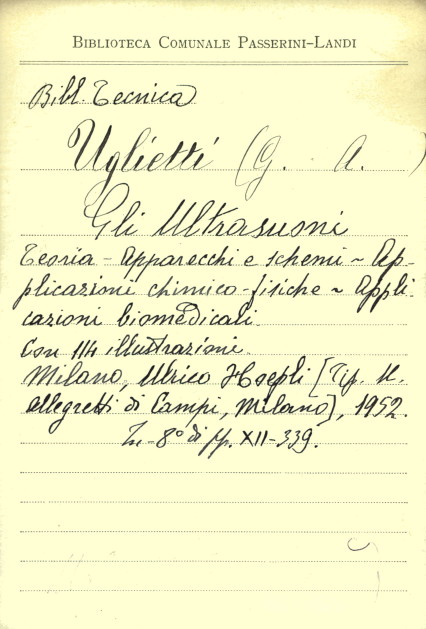 BIBLIOTECA COMUNALE PASSERINI-LANDI
Bibl. Tecnica
Uglietti (G. A.)
Gli Ultrasuoni
Teoria - Apparecchi e schemi - Ap-
plicazioni chimico-fisiche - Appli-
cazioni biomedicali.
Con 114 illustrazioni.
Milano, Ulrico Hoepli [Tip. U.
Allegretti di Campi, Milano], 1952.
In-8° di pp. XII-339.